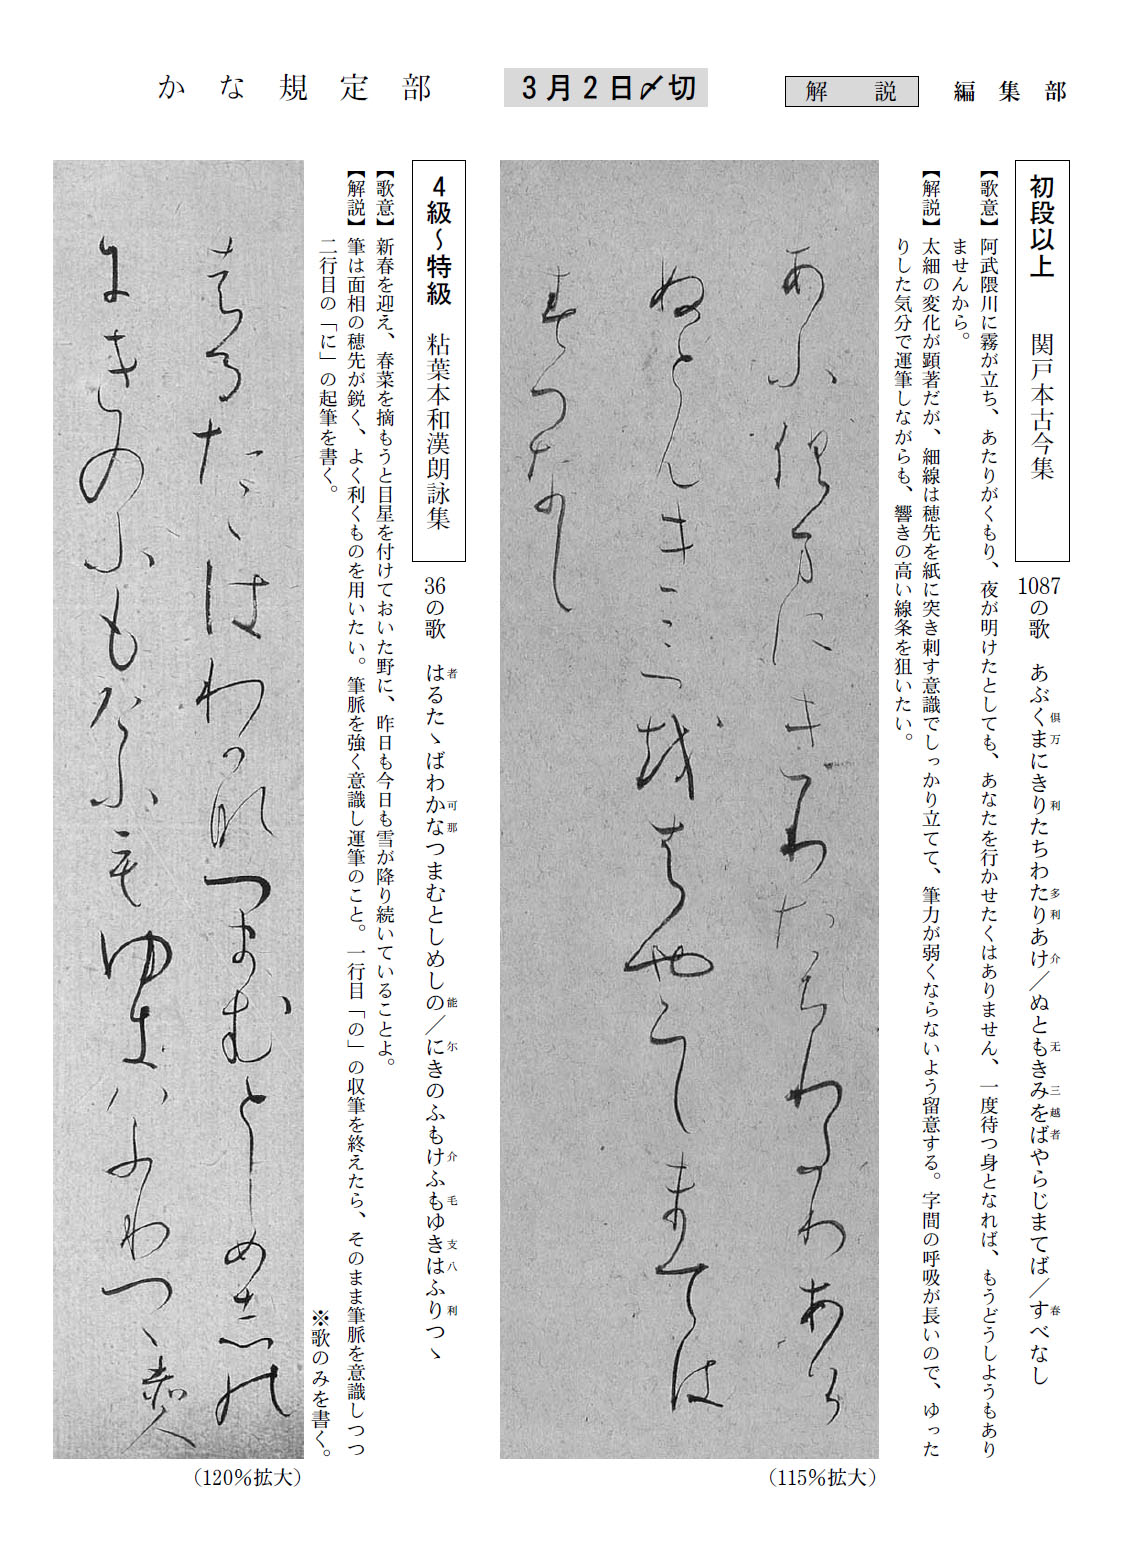 かな規定部
3月2日〆切
解説
編集部
初段以上 関戸本古今集
1087の歌 あぶくまにきりたちわたりあけ／ぬともきみをばやらじまてば／すべなし
倶万 利 多利 介 无 三越者 春
【歌意】阿武隈川に霧が立ち、あたりがくもり、夜が明けたとしても、あなたを行かせたくはありません、一度待つ身となれば、もうどうしようもあり
ませんから。
【解説】太細の変化が顕著だが、細線は穂先を紙に突き刺す意識でしっかり立てて、筆力が弱くならないよう留意する。字間の呼吸が長いので、ゆった
りした気分で運筆しながらも、響きの高い線条を狙いたい。
あふ倶万にきりたちわ多利あ介
ぬとん无きみ越者やらしまては
春へなし
（115％拡大）
4級〜特級 粘葉本和漢朗詠集
36の歌 はるたゝばわかなつまむとしめしの／にきのふもけふもゆきはふりつゝ
者 可那 能 尓 介 毛 支八 利
【歌意】新春を迎え、春菜を摘もうと目星を付けておいた野に、昨日も今日も雪が降り続いていることよ。
【解説】筆は面相の穂先が鋭く、よく利くものを用いたい。筆脈を強く意識し運筆のこと。一行目「の」の収筆を終えたら、そのまま筆脈を意識しつつ
二行目の「に」の起筆を書く。
※歌のみを書く。
者るたゝはわ可那つまむとしめし能
尓きのふもけふ毛ゆ支八ふ利つゝ
（120％拡大）